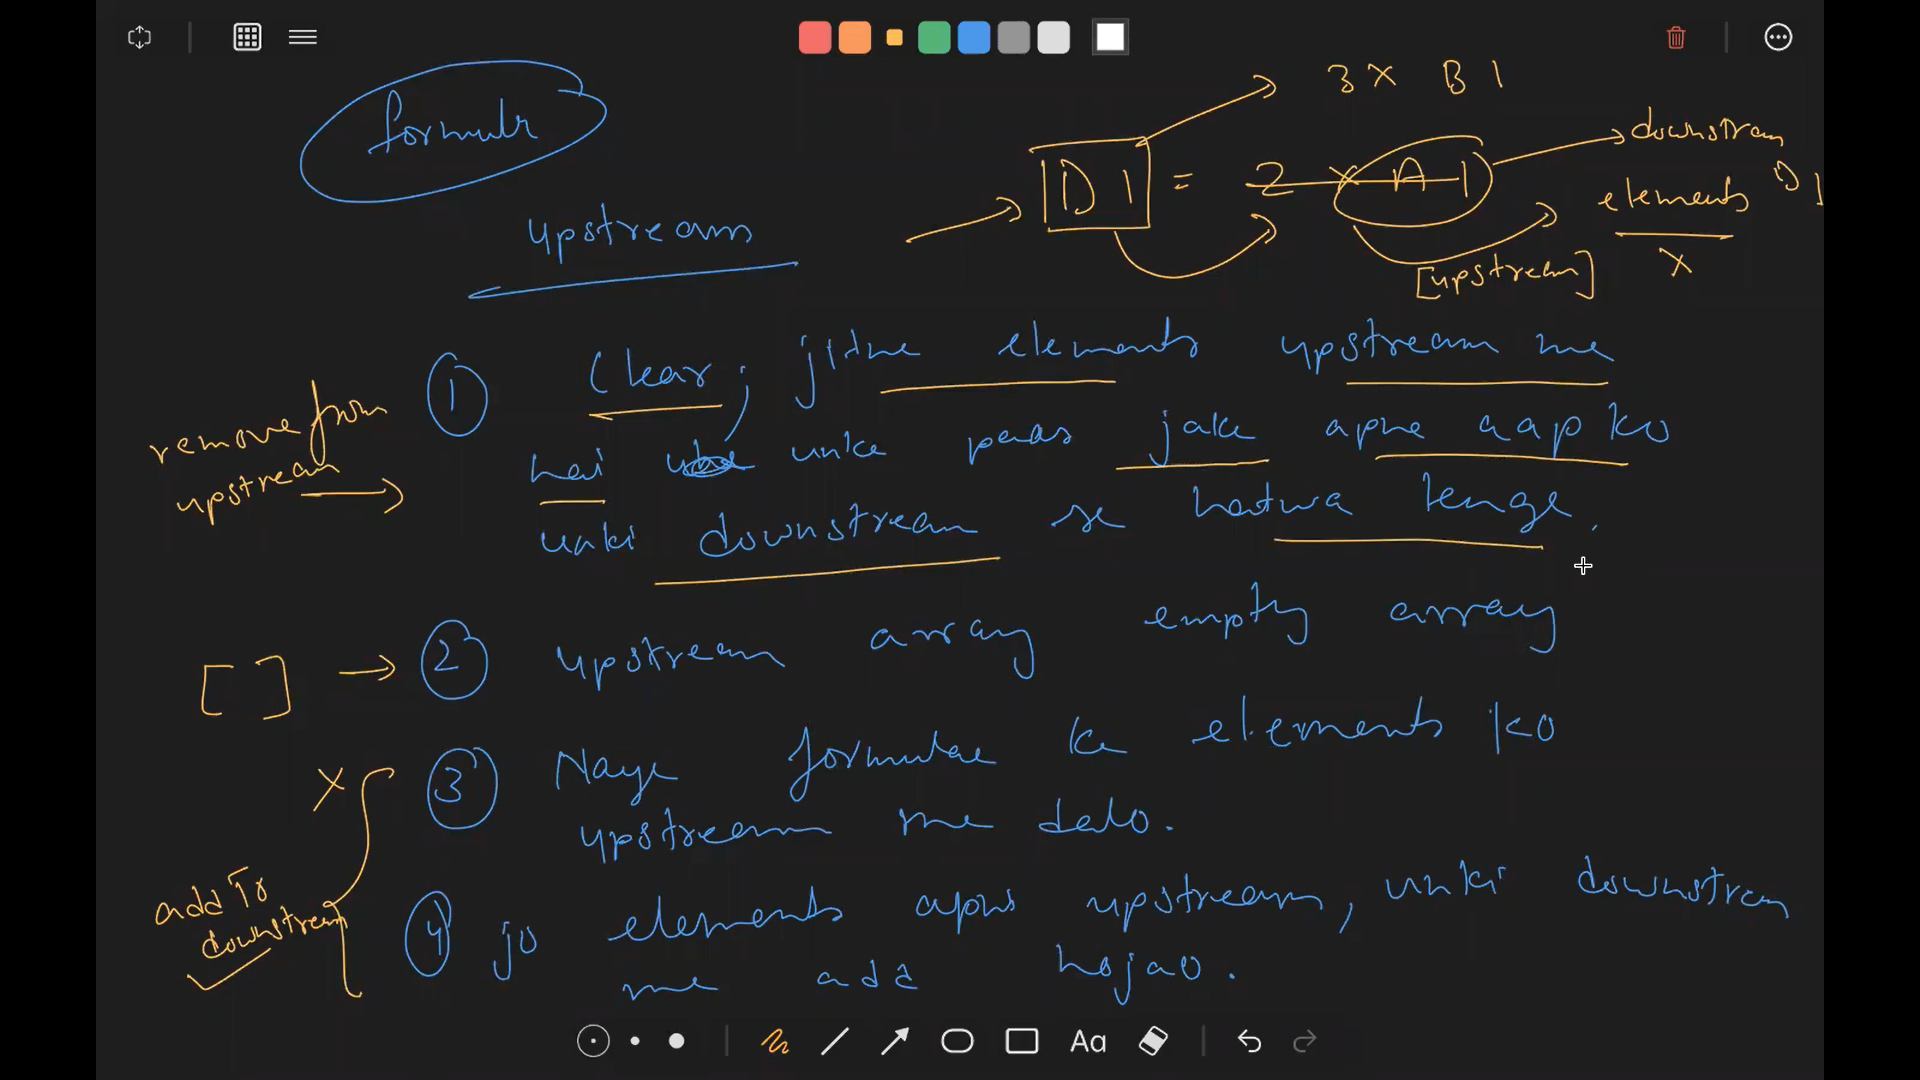 formula
3 x B1
D1 = 2 x A1
downstream
elements D1
x
[upstream]
upstream
① Clear, jitne elements upstream me
hai unke paas jake apne aap ko
unki downstream se hatwa lenge.
remove from
upstream
[ ] → ② upstream array empty array
x
③ Naye formulae ke elements ko
upstream me dalo.
add To
downstream
④ jo elements apni upstream, unki downstream
me add hojao.
Aa